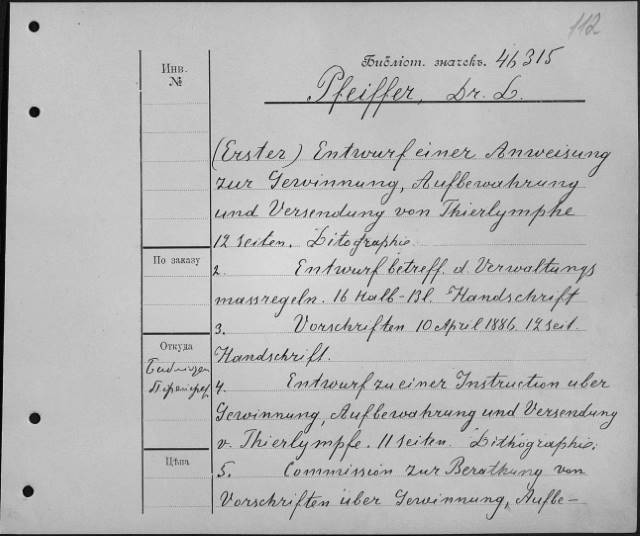 112
Инв. №
Библіот. значекъ. 46315
Pfeiffer, Dr. L.
(Erster) Entwurf einer Anweisung
zur Gewinnung, Aufbewahrung
und Versendung von Thierlymphe
12 Seiten. Litographie.
По заказу
2. Entwurf betreff. d. Verwaltungs
massregeln. 16 halb-Bl. Handschrift
3. Vorschriften 10 April 1886. 12 seit.
Откуда
Handschrift.
4. Entwurf zu einer Instruction uber
Gewinnung, Aufbewahrung und Versendung
v. Thierlympfe. 11 seiten. Lithographie;
Цѣна
5. Commission zur Berathung von
Vorschriften über Gewinnung, Aufbe-